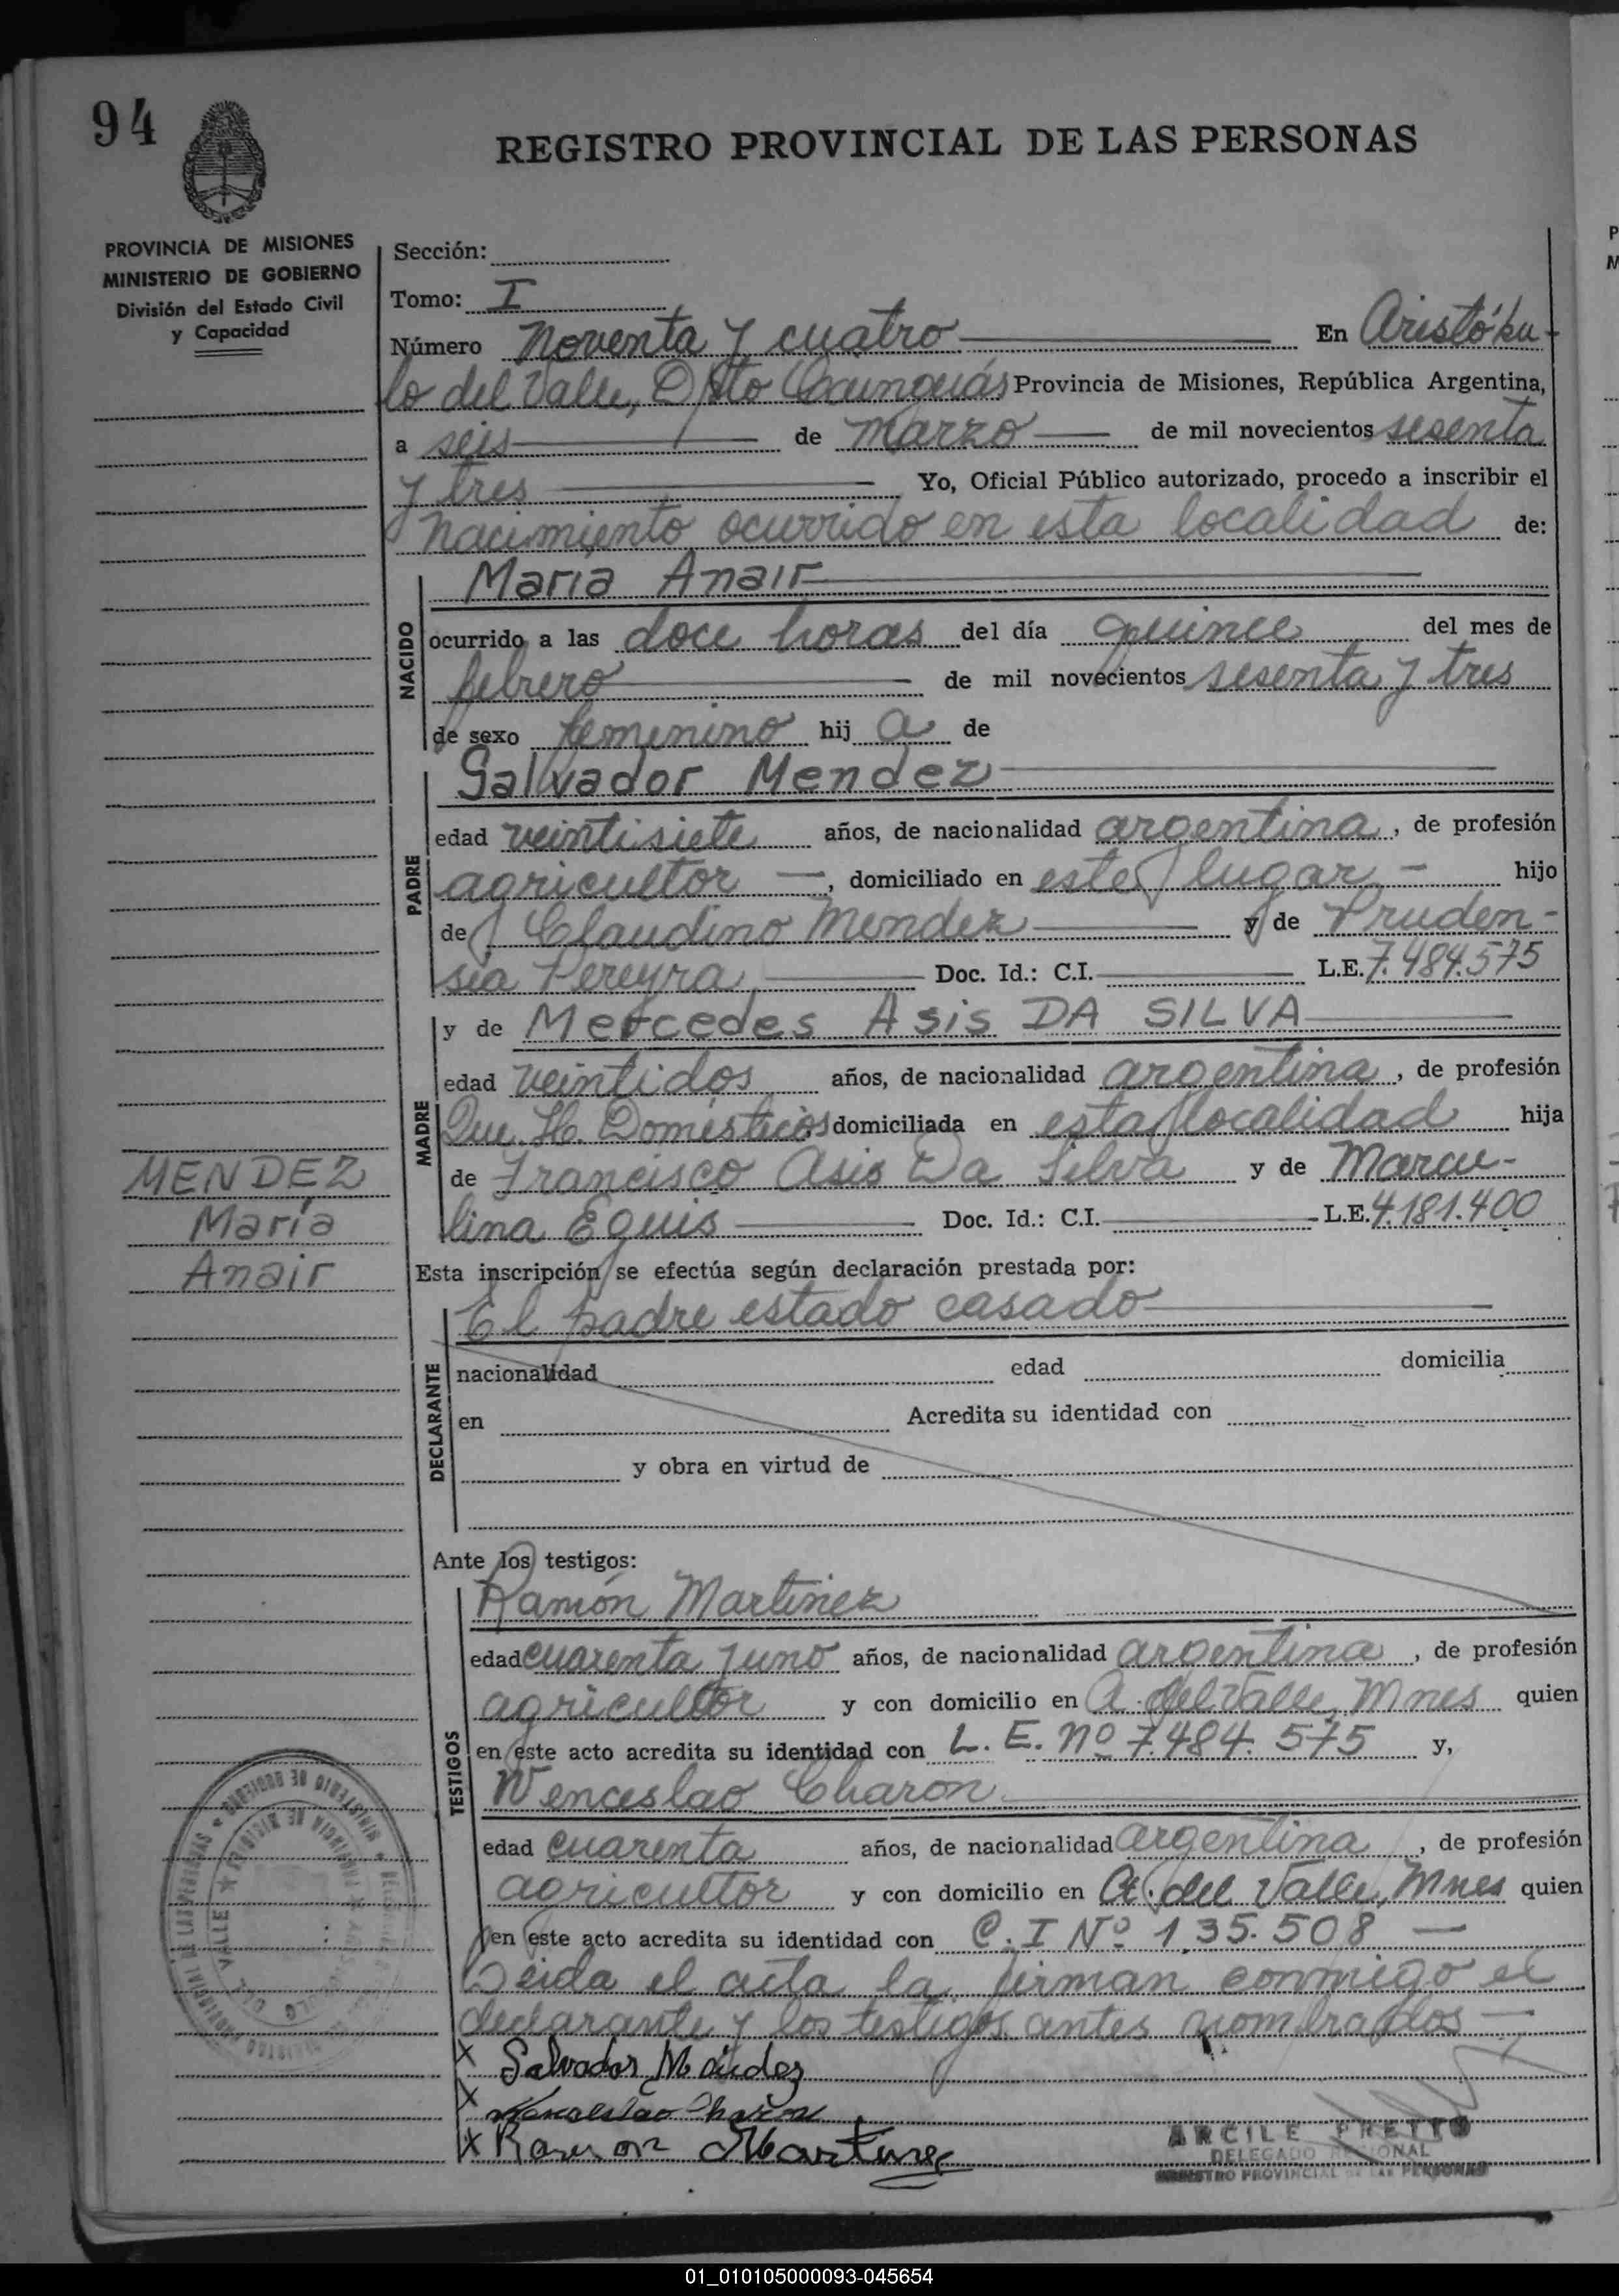 94
REGISTRO PROVINCIAL DE LAS PERSONAS
PROVINCIA DE MISIONES
MINISTERIO DE GOBIERNO
División del Estado Civil
y Capacidad
Sección:
Tomo: I
Número Noventa y cuatro En Aristóbu-
lo del Valle, Dpto Cainguás Provincia de Misiones, República Argentina,
a seis de marzo de mil novecientos sesenta
y tres Yo, Oficial Público autorizado, procedo a inscribir el
nacimiento ocurrido en esta localidad de:
NACIDO
Maria Anair
ocurrido a las doce horas del día quince del mes de
febrero de mil novecientos sesenta y tres
de sexo femenino hij a de
PADRE
Salvador Mendez
edad veintisiete años, de nacionalidad argentina, de profesión
agricultor, domiciliado en este lugar hijo
de Claudino Mendez y de Pruden-
sia Pereyra Doc. Id.: C.I. L.E. 7.484.575
MADRE
y de Mercedes Asis DA SILVA
edad veintidos años, de nacionalidad argentina, de profesión
Que. H. Domésticos domiciliada en esta localidad hija
de Francisco Asis Da Silva y de Marcu-
lina Eguis Doc. Id.: C.I. L.E. 4.181.400
MENDEZ
María
Anair
Esta inscripción se efectúa según declaración prestada por:
DECLARANTE
El padre estado casado
nacionalidad edad domicilia
en Acredita su identidad con
y obra en virtud de
Ante los testigos:
TESTIGOS
Ramón Martinez
edad cuarenta y uno años, de nacionalidad argentina, de profesión
agricultor y con domicilio en A. del Valle, Mnes quien
en este acto acredita su identidad con L. E. Nº 7.484.575 y,
Wenceslao Charon
edad cuarenta años, de nacionalidad argentina, de profesión
agricultor y con domicilio en A. del Valle, Mnes quien
en este acto acredita su identidad con C. I Nº 135.508
Leida el acta la firman conmigo el
declarante y los testigos antes nombrados
X Salvador Méndez
X Wenceslao Charon
X Ramon Martinez
ARCILE PRETTO
DELEGADO REGIONAL
REGISTRO PROVINCIAL DE LAS PERSONAS
01_010105000093-045654